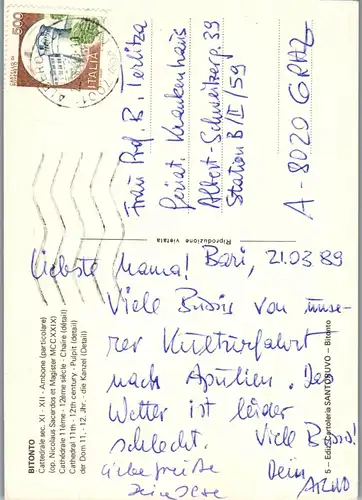 BITONTO
Cattedrale sec. XI - XII - Ambone (particolare)
(op. Nicolaus Sacerdos et Magister MCCXXIX)
Cathédrale 11ème - 12ème siècle - Chaire (détail)
Cathedral 11th - 12th century - Pulpit (detail)
der Dom 11. - 12. Jhr. - die Kanzel (Detail)
Liebste Mama! Bari, 21.03.89
Viele Bussis von unse-
rer Kulturfahrt
nach Apulien. Das
Wetter ist leider
schlecht. Viele Bussis!
Dein
ARNO
Liebe Grüße
Deine
Riproduzione vietata
5 - Ediz. Cartoleria SANTORUVO - Bitonto
500
ITALIA
Frau Prof. B. Terlitza
Geriat. Krankenhaus
Albert-Schweitzerg. 39
Station B/II/59
A-8020 GRAZ